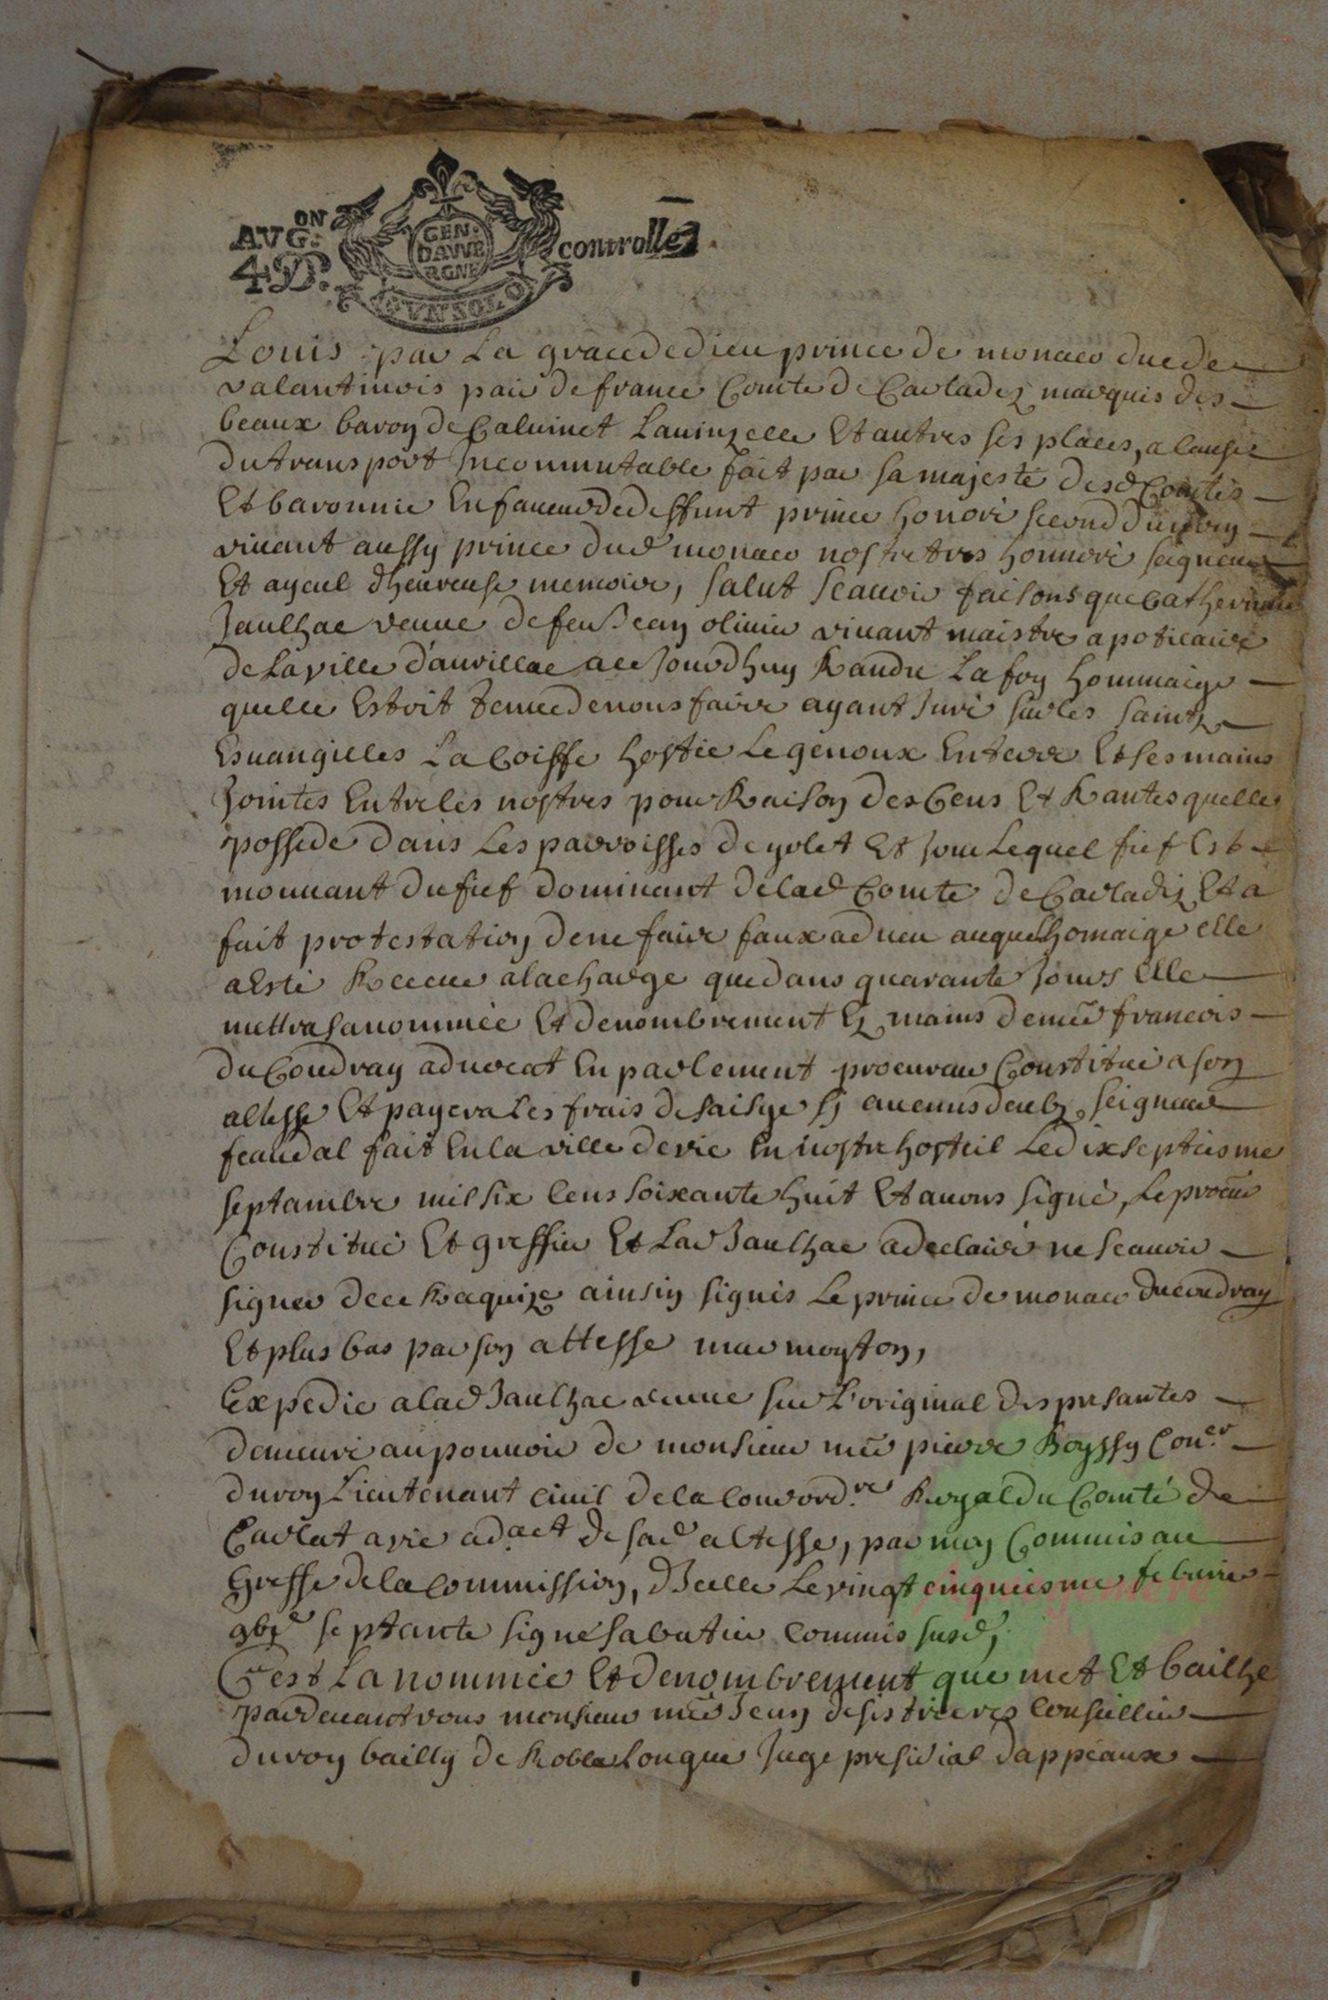 AVG.ON
4D.
GEN.
DAVVE
RGNE
VN SOL
controllé
Louis par La grace de dieu prince de monaco duc de
valantinois pair de france Comte de Carladez marquis des
beaux baron de Caluinet Lauinzelle Et autres ses places, a cause
du transport Incommutable fait par sa majesté desd Comtés
Et baronnie En faueur de deffunt prince honoré second du nom
viuant aussy prince dud monaco nostre tres honnoré seigneur
Et ayeul d'heureuse memoire, salut scauoir faisons que Catherine
Jaulhac veuue de feu Jean oliuier viuant maistre apoticaire
de La ville d'aurillac a ce Jourdhuy Randu La foy hommaige
quelle Estoit tenue de nous faire ayant Juré sur les saintz
Esuangilles La Coiffe hostée Le genoux En terre Et ses mains
Jointes Entre les nostres pour Raison des Cens Et Rantes quelle
possede dans Les parroisses de yolet Et Jou Lequel fief Est
mouuant du fief dominant de lad Comté de Carladez Et a
fait protestation de ne faire faux adueu auquel homaige elle
a Esté Receue a la charge que dans quarante Jours Elle
mettra sa nommée Et denombrement Ez mains de mre francois
du Coudray aduocat En parlement procureur Constitué a son
altesse Et payera les frais de saisye sy aucuns deubz, seigneur
feaudal fait En la ville de vic En nostre hosteil Le dixseptiesme
septambre mil six Cens soixante huit Et auons signé, Le procur
Constitué Et greffier Et Lad Jaulhac a declairé ne scauoir
signer de ce Requize ainsin signés Le prince de monaco ducoudray
Et plus bas par son altesse marmoyton,
Expedié a lad Jaulhac veuue sur L'original des presantes
demeuré au pouuoir de monsieur mre pierre Boyssy Coner
du roy Lieutenant Ciuil de la Cour ord.re Royal du Comté de
Carlat a vic ad.act de sad altesse, par moy Commis au
Greffe de la Commission, d'Icelle Le vingt cinquiesme febvrier
septante signé sabatier Commis susd,
C'est La nommée Et denombrement que met Et bailhe
pardeuant vous monsieur mre Jean de sistrieres Conseillier
du roy bailly de Roblelongue Juge presidial d'appeaux